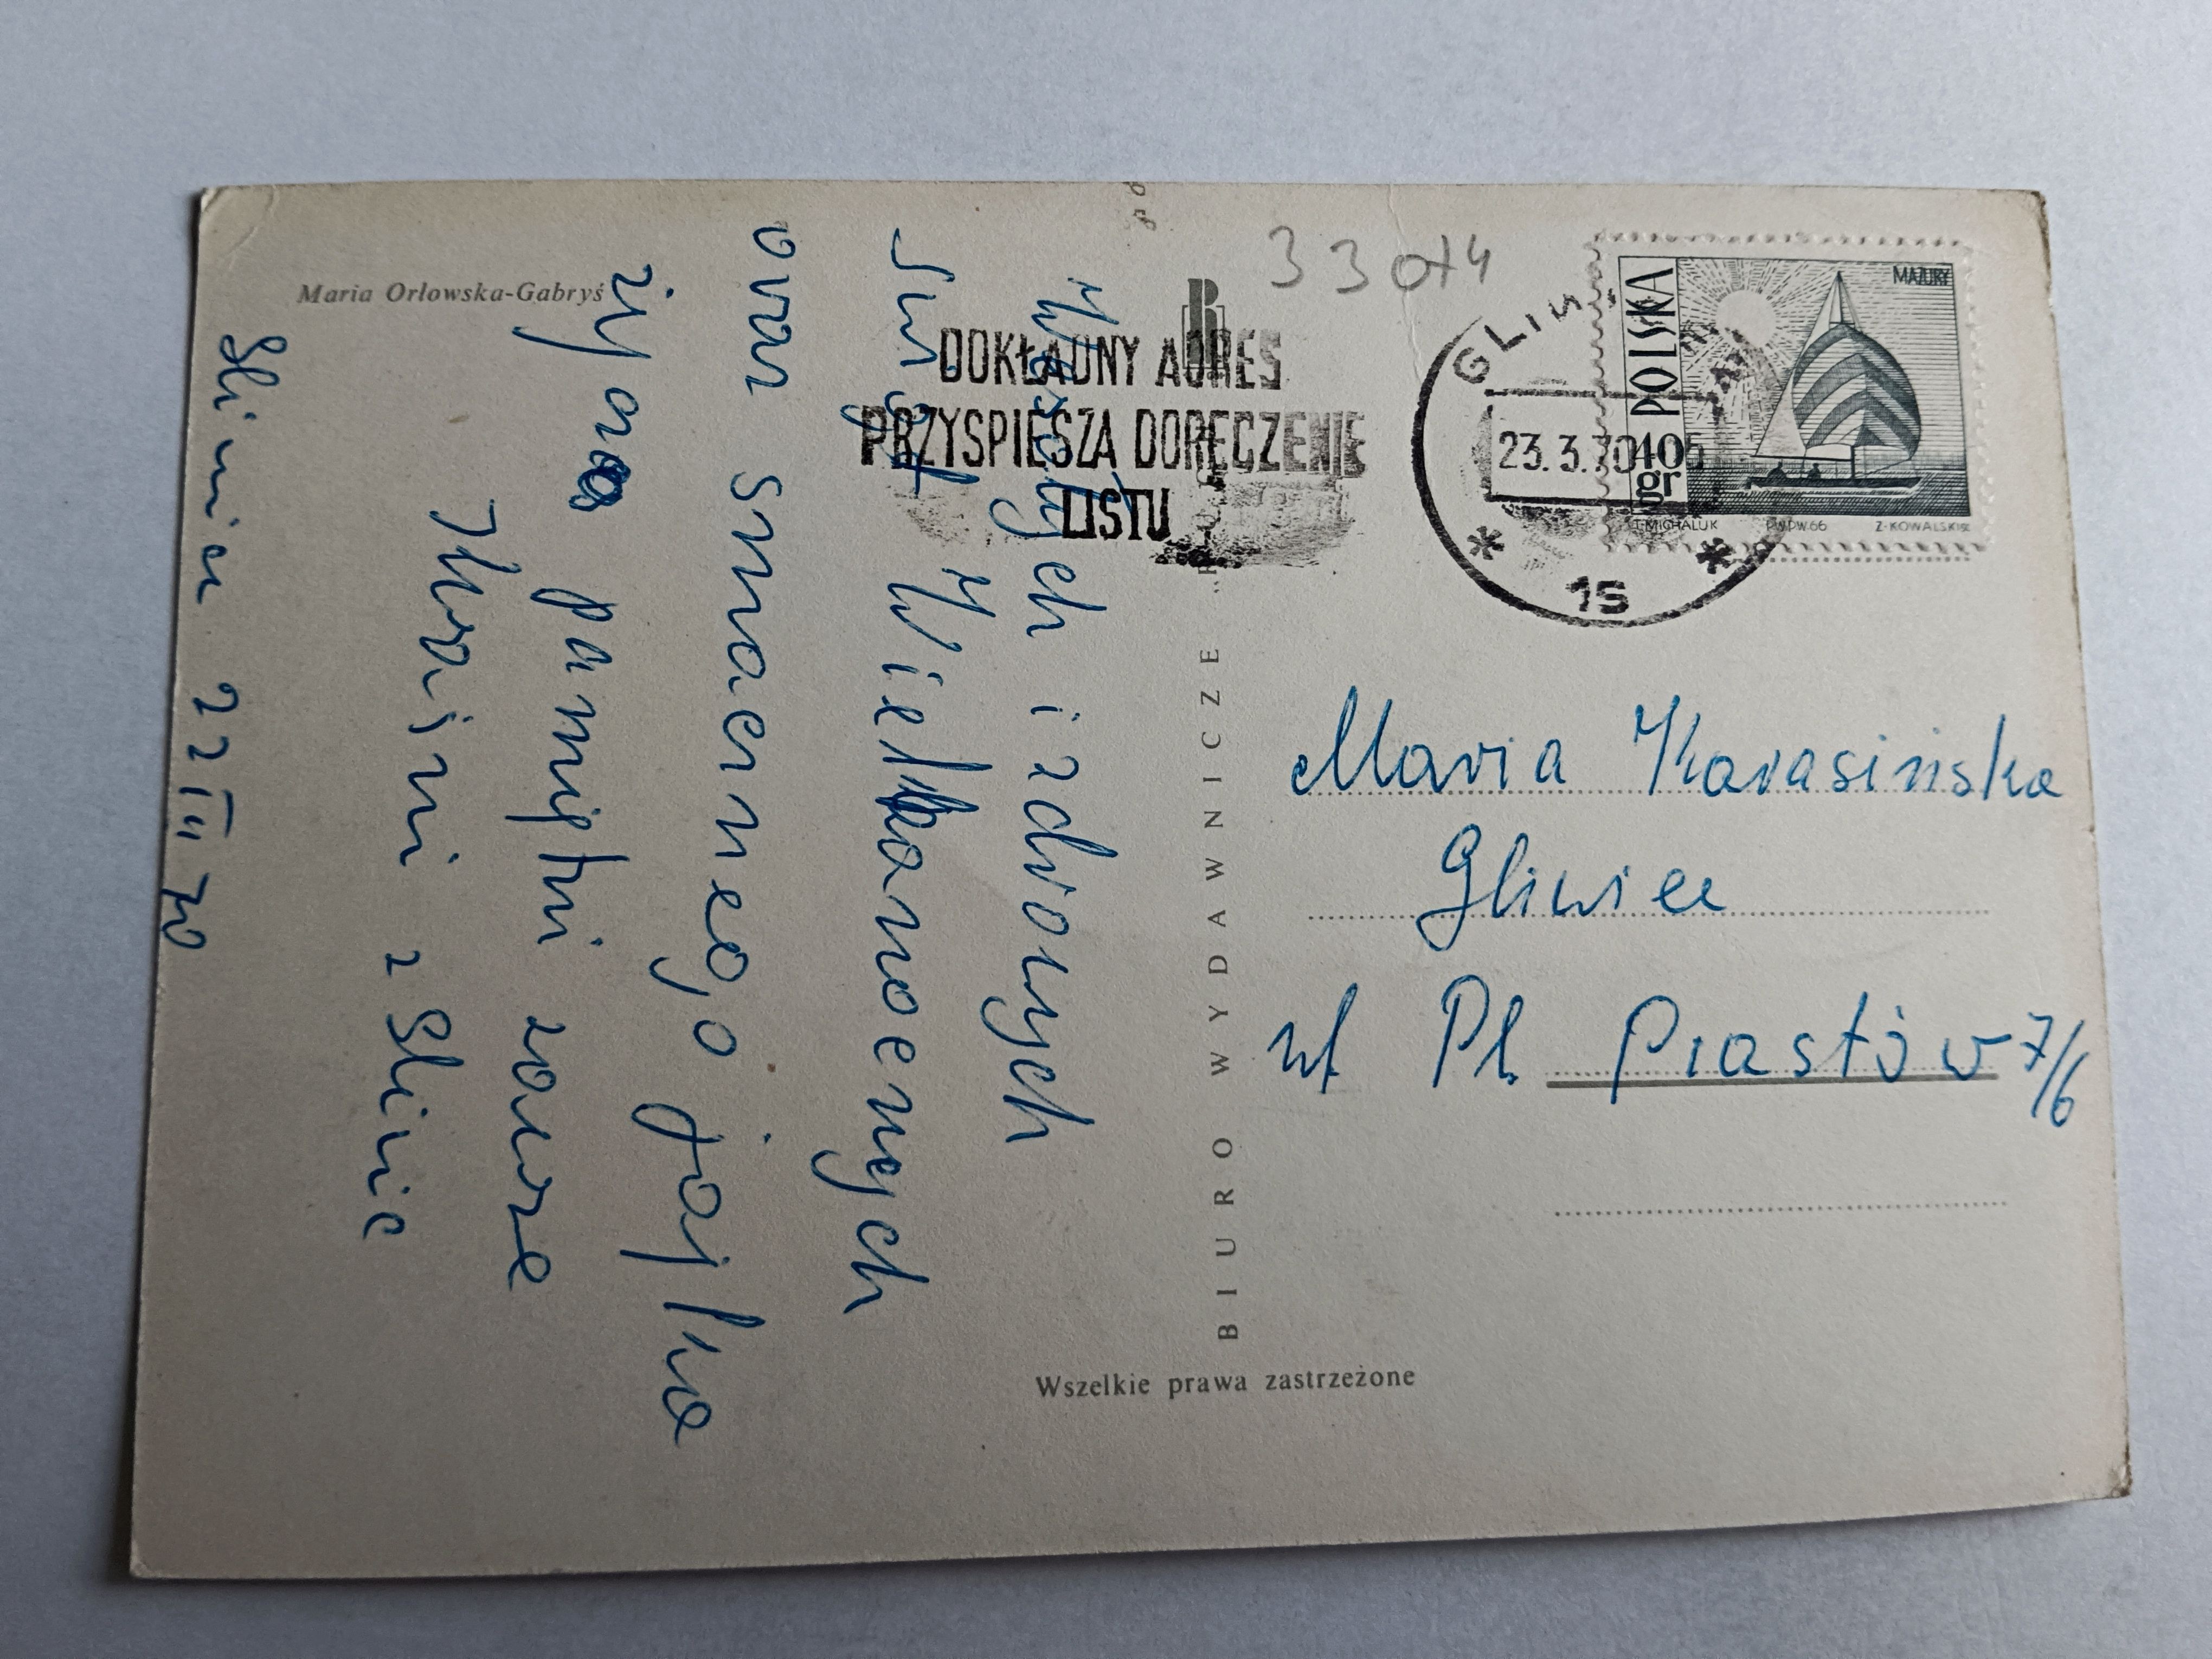 Maria Orłowska-Gabryś
Wesołych i zdrowych
Świąt Wielkanocnych
oraz smacznego jajka
życzą pamiętni zawsze
z Gliwic
Gliwice 22 III 70
BIURO WYDAWNICZE
Wszelkie prawa zastrzeżone
DOKŁADNY ADRES
PRZYSPIESZA DORĘCZENIE
LISTU
23.3.70
1s
POLSKA
40 gr
MAZURY
T. MICHALUK PWPW.66 Z. KOWALSKI sc.
Maria Karasińska
Gliwice
ul Pl. Piastów 7/6